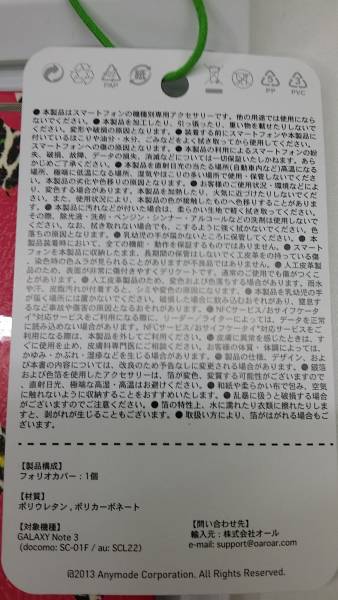 PAP
PP
PVC
● 本製品はスマートフォンの機種別専用アクセサリーです。他の用途では使用にな
らないでください。● 本製品を加工したり、引っ張ったり、重い物を載せたりしないで
ください。変形や破損の原因となります。● 装着する前にスマートフォンや本製品に
付いているほこりや油分・水分、ごみなどをよく拭き取ってから使用してください。
スマートフォンへの傷の原因となります。● 本製品の利用によるスマートフォンの紛
失、破損、故障、データの損失、消滅などについては一切保証いたしかねます。あら
かじめご了承ください。● 本製品を直射日光の当たる場所(自動車内など)高温になる
場所、極端に低温になる場所、湿気やほこりの多い場所で使用・保管しないでくださ
い。本製品の劣化や色移りの原因となります。● お客様のご使用状況・環境などによ
り、変色する場合があります。本製品を加熱したり、火気に近づけたりしないでくだ
さい。また、使用状況により、本製品の色が接触したものへ色移りすることがありま
す。● 本製品に汚れなどが付いた場合は、柔らかい生地で軽く拭き取ってください。
その際、除光液・洗剤・ベンジン・シンナー・アルコールなどの洗剤は使用しないで
ください。なお、拭き取れない場合でも、こするように強く拭かないでください。色
落ちの原因となります。● 乳幼児の手が届かないところに保管してください。● 本
製品装着時において、全ての機能・動作を保証するものではありません。● スマート
フォンを本製品に収納したまま、長期間の保管はしないでください。人工皮革の持っている傷
・染色時の色ムラが見られることがありますが不良品ではありません。● 人工皮革製
品のため、表面が非常に傷付きやすくデリケートです。通常のご使用でも傷がつくこ
とがあります。● 人工皮革製品のため、変色および色落ちする場合があります。雨水
や汗、皮脂汚れが付着すると、シミや変色の原因になります。● 本製品を乳幼児の手
が届く場所には置かないでください。破損した場合に飲み込むおそれがあり、窒息す
るなど事故や傷害の原因となるおそれがあります。● NFCサービス/おサイフケータイ
対応サービスをご利用になる際に、リーダー/ライターによっては、データを正常
に読み込めない場合があります。NFCサービス/おサイフケータイ対応サービスをご
利用になる際は、本製品を外してご利用ください。● 皮膚に異常を感じたときは、す
ぐに使用を止め、皮膚科専門医にご相談ください。お客様の体質・体調によっては、
かゆみ・かぶれ・湿疹などを生じる場合があります。● 製品の仕様、デザイン、およ
び本書の内容については、改良のため予告なしに変更される場合があります。● 銀箔
および色箔を使用したアクセサリーは、箔が変色、変質する可能性がございますので
、直射日光、極端な高温・高湿はお避けください。● 和紙や柔らかい布で包み、空気
に触れないように収納することをおすすめいたします。● 乱暴に扱うと破損する場合
がございますのでご注意ください。● 箔の特性上、水に濡れたり衣類に擦れたりしま
すと、剥がれが生じることもございます。● 取扱い方により、箔がはがれる場合もご
ざいます。
【製品構成】
フォリオカバー：1個
【材質】
ポリウレタン, ポリカーボネート
【対象機種】
GALAXY Note 3
(docomo: SC-01F / au: SCL22)
【問い合わせ先】
輸入元：株式会社オール
e-mail: support@oaroar.com
@2013 Anymode Corporation. All Rights Reserved.